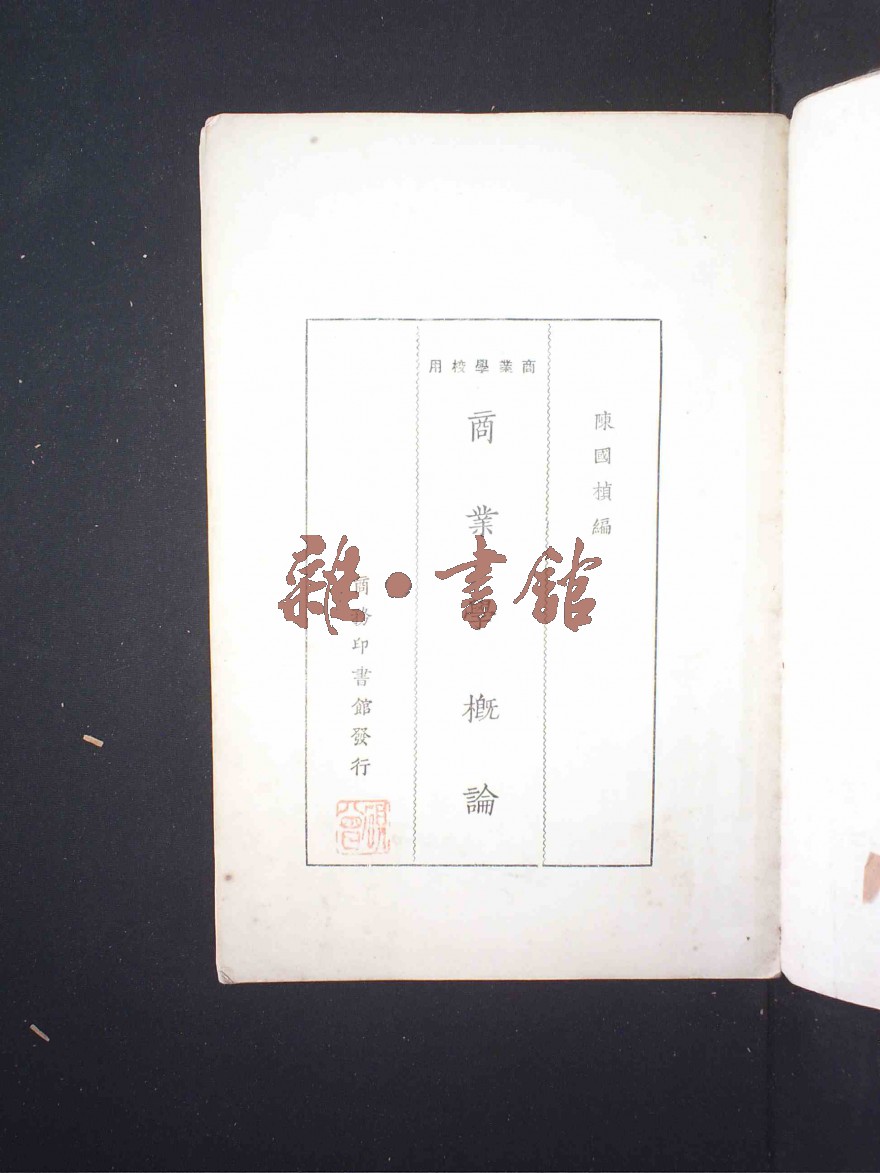 陳國楨編
商業學校用
商業學概論
商務印書館發行
雜•書館